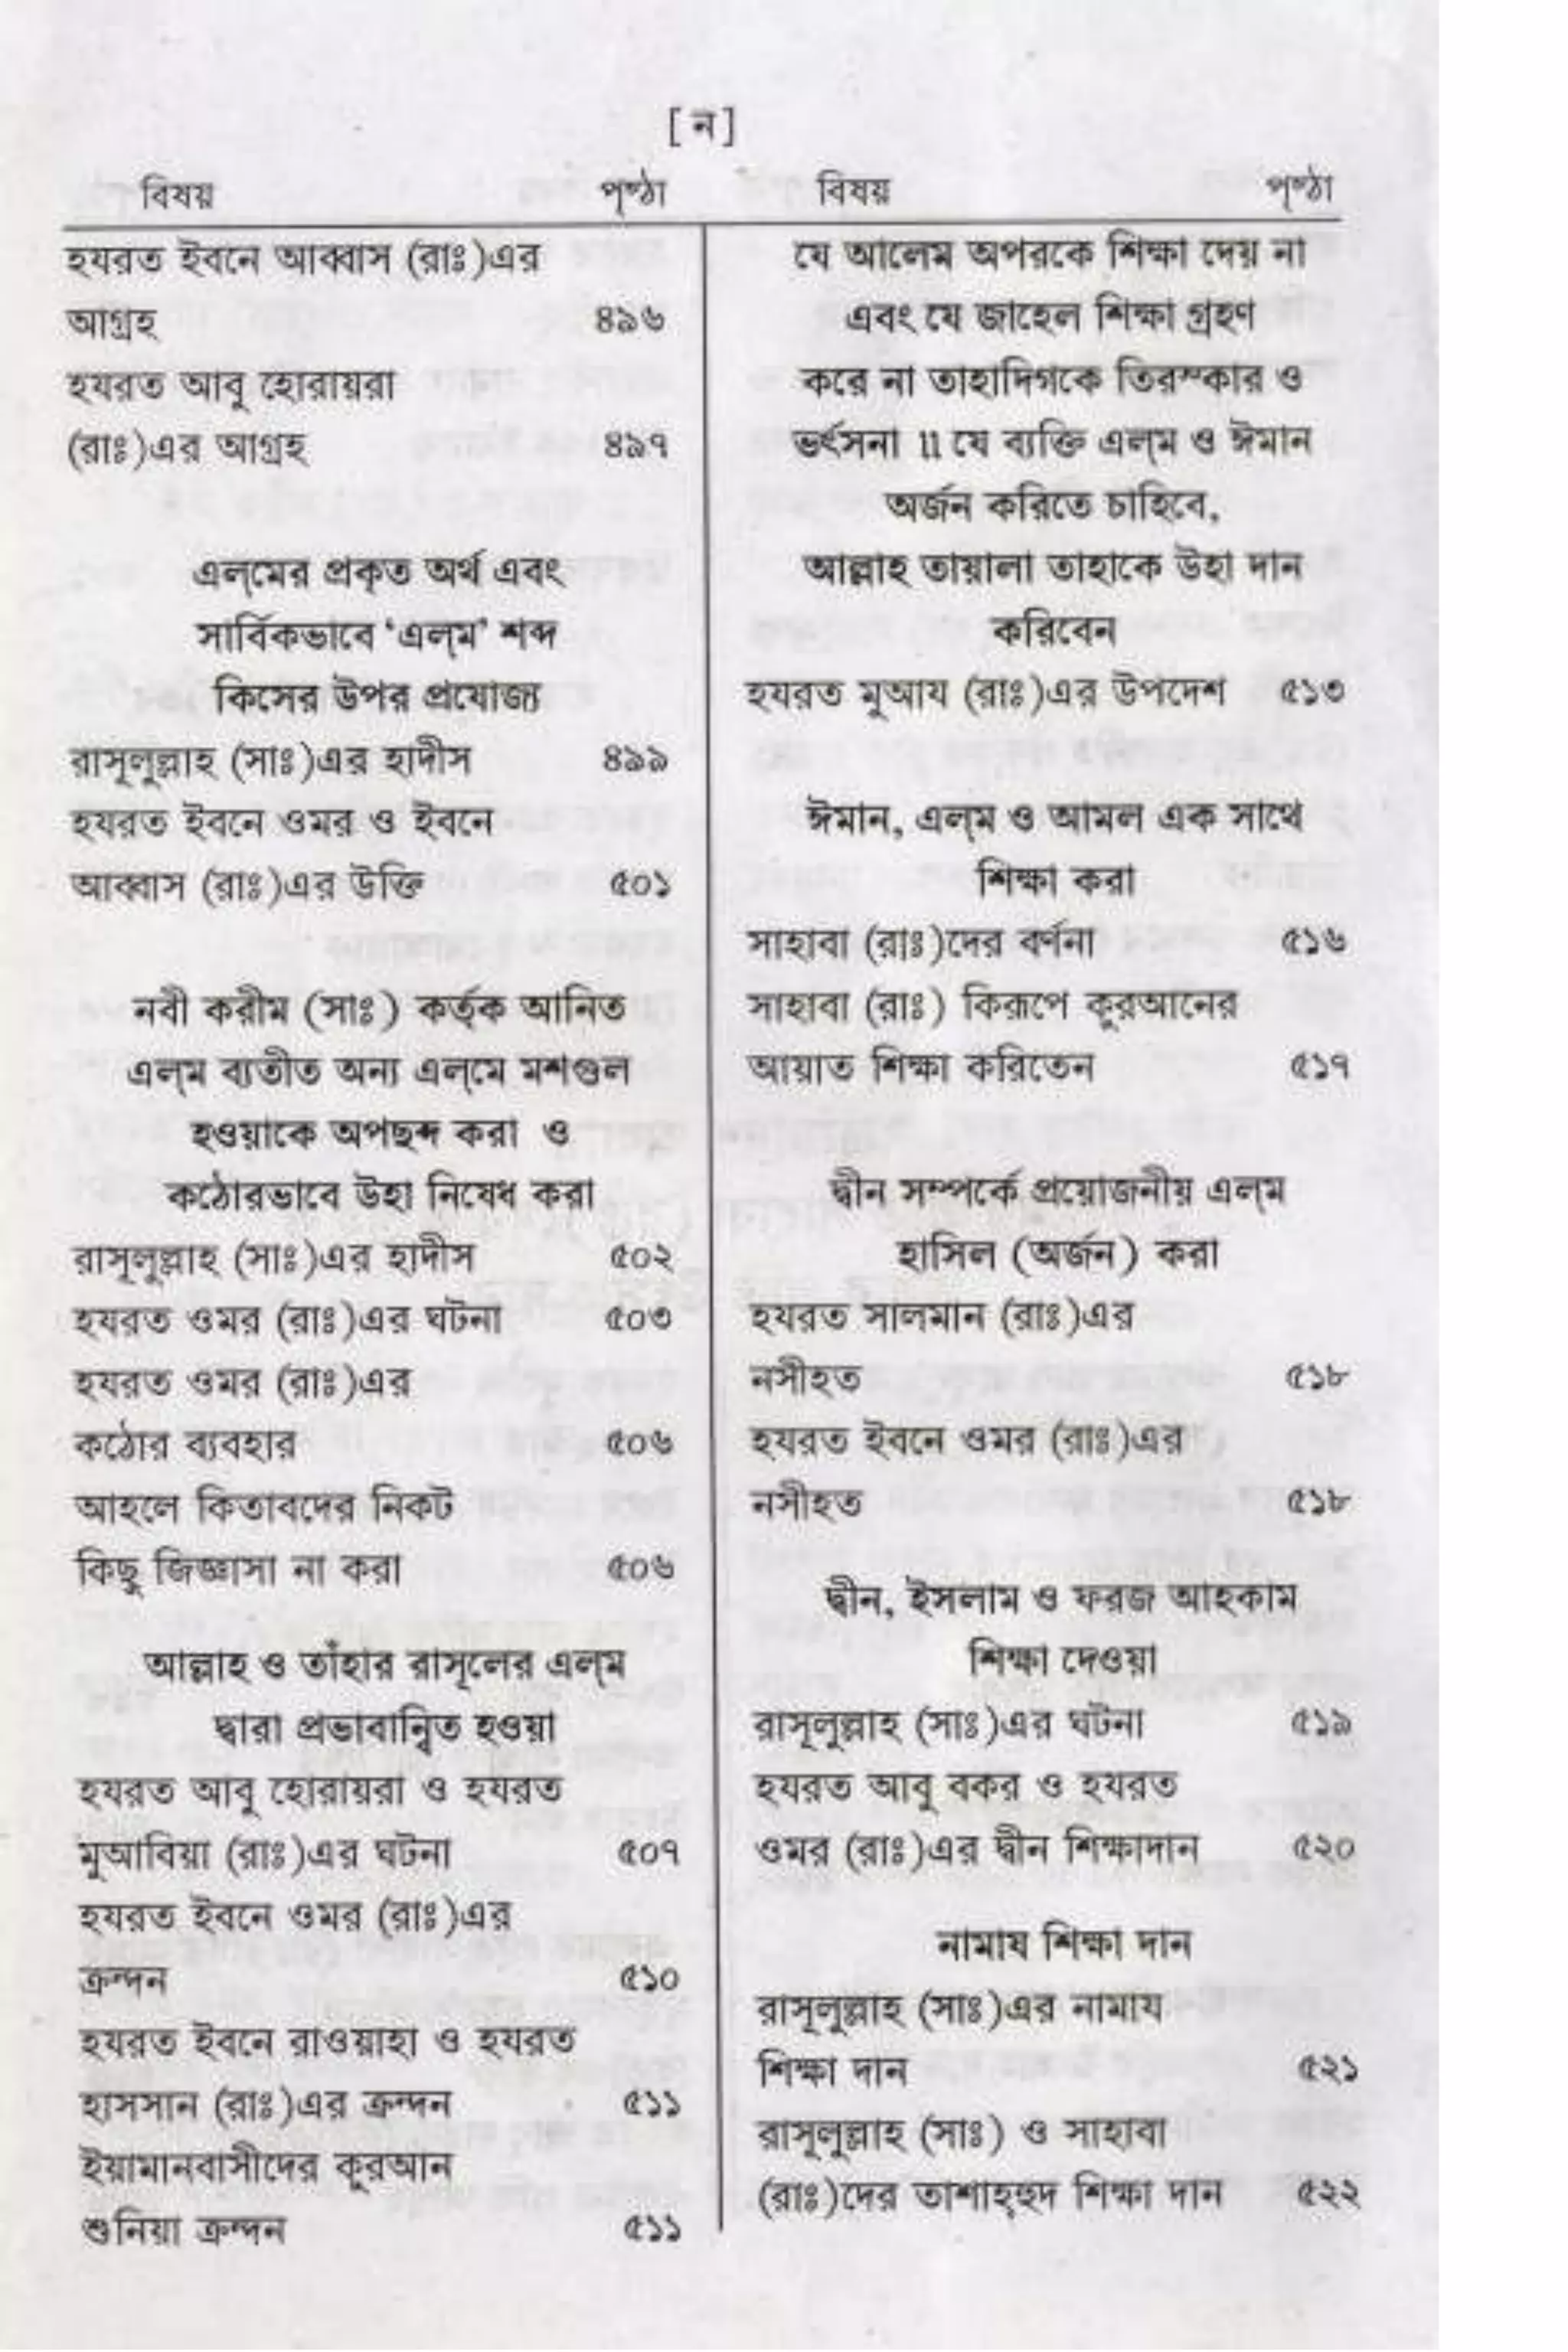 [ ন ]
বিষয় পৃষ্ঠা
হযরত ইবনে আব্বাস (রাঃ)এর
আগ্রহ ৪৯৬
হযরত আবু হোরায়রা
(রাঃ)এর আগ্রহ ৪৯৭
এল্‌মের প্রকৃত অর্থ এবং
সার্বিকভাবে ‘এল্‌ম’ শব্দ
কিসের উপর প্রযোজ্য
রাসূলুল্লাহ (সাঃ)এর হাদীস ৪৯৯
হযরত ইবনে ওমর ও ইবনে
আব্বাস (রাঃ)এর উক্তি ৫০১
নবী করীম (সাঃ) কর্তৃক আনিত
এল্‌ম ব্যতীত অন্য এল্‌মে মশগুল
হওয়াকে অপছন্দ করা ও
কঠোরভাবে উহা নিষেধ করা
রাসূলুল্লাহ (সাঃ)এর হাদীস ৫০২
হযরত ওমর (রাঃ)এর ঘটনা ৫০৩
হযরত ওমর (রাঃ)এর
কঠোর ব্যবহার ৫০৬
আহলে কিতাবদের নিকট
কিছু জিজ্ঞাসা না করা ৫০৬
আল্লাহ ও তাঁহার রাসূলের এল্‌ম
দ্বারা প্রভাবান্বিত হওয়া
হযরত আবু হোরায়রা ও হযরত
মুআবিয়া (রাঃ)এর ঘটনা ৫০৭
হযরত ইবনে ওমর (রাঃ)এর
ক্রন্দন ৫১০
হযরত ইবনে রাওয়াহা ও হযরত
হাসসান (রাঃ)এর ক্রন্দন ৫১১
ইয়ামানবাসীদের কুরআন
শুনিয়া ক্রন্দন ৫১১
বিষয় পৃষ্ঠা
যে আলেম অপরকে শিক্ষা দেয় না
এবং যে জাহেল শিক্ষা গ্রহণ
করে না তাহাদিগকে তিরস্কার ও
ভর্ৎসনা ॥ যে ব্যক্তি এল্‌ম ও ঈমান
অর্জন করিতে চাহিবে,
আল্লাহ তায়ালা তাহাকে উহা দান
করিবেন
হযরত মুআয (রাঃ)এর উপদেশ ৫১৩
ঈমান, এল্‌ম ও আমল এক সাথে
শিক্ষা করা
সাহাবা (রাঃ)দের বর্ণনা ৫১৬
সাহাবা (রাঃ) কিরূপে কুরআনের
আয়াত শিক্ষা করিতেন ৫১৭
দ্বীন সম্পর্কে প্রয়োজনীয় এল্‌ম
হাসিল (অর্জন) করা
হযরত সালমান (রাঃ)এর
নসীহত ৫১৮
হযরত ইবনে ওমর (রাঃ)এর
নসীহত ৫১৮
দ্বীন, ইসলাম ও ফরজ আহকাম
শিক্ষা দেওয়া
রাসূলুল্লাহ (সাঃ)এর ঘটনা ৫১৯
হযরত আবু বকর ও হযরত
ওমর (রাঃ)এর দ্বীন শিক্ষাদান ৫২০
নামায শিক্ষা দান
রাসূলুল্লাহ (সাঃ)এর নামায
শিক্ষা দান ৫২১
রাসূলুল্লাহ (সাঃ) ও সাহাবা
(রাঃ)দের তাশাহ্‌হুদ শিক্ষা দান ৫২২